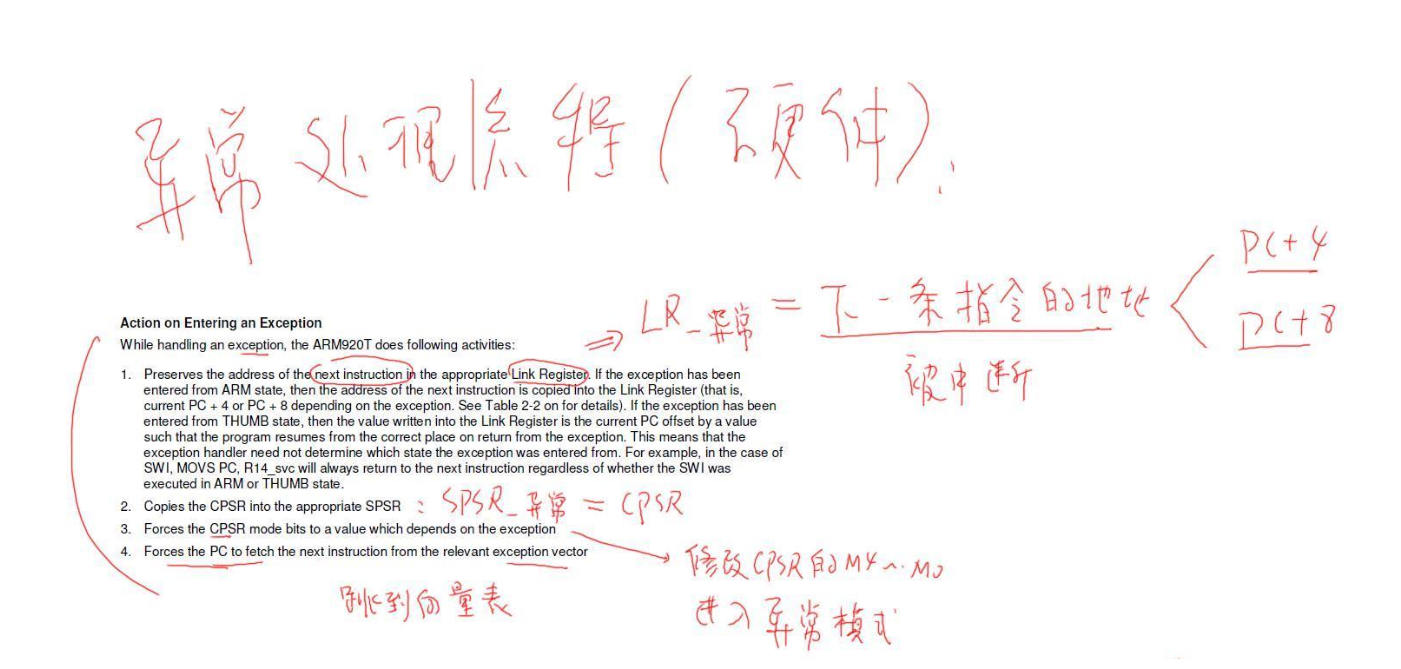 异常处理流程(硬件):
PC+4
LR_异常 = 下一条指令的地址
PC+8
被中断
Action on Entering an Exception
While handling an exception, the ARM920T does following activities:
1. Preserves the address of the next instruction in the appropriate Link Register. If the exception has been
entered from ARM state, then the address of the next instruction is copied into the Link Register (that is,
current PC + 4 or PC + 8 depending on the exception. See Table 2-2 on for details). If the exception has been
entered from THUMB state, then the value written into the Link Register is the current PC offset by a value
such that the program resumes from the correct place on return from the exception. This means that the
exception handler need not determine which state the exception was entered from. For example, in the case of
SWI, MOVS PC, R14_svc will always return to the next instruction regardless of whether the SWI was
executed in ARM or THUMB state.
2. Copies the CPSR into the appropriate SPSR : SPSR_异常 = CPSR
3. Forces the CPSR mode bits to a value which depends on the exception
4. Forces the PC to fetch the next instruction from the relevant exception vector
修改CPSR的M4~M0
跳到向量表
进入异常模式